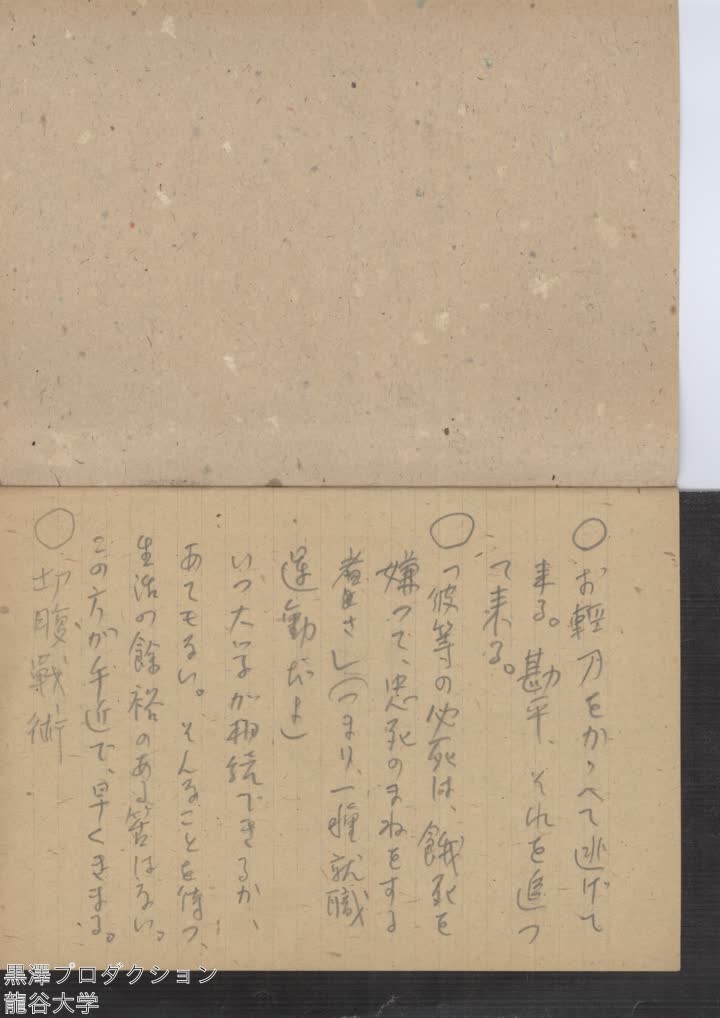 ○お軽刀をかゝへて逃げて
来る。勘平、それを追つ
て来る。
○「彼等の必死は、餓死を
嫌つて、忠死のまねをする
者さ」(つまり、一種就職
運動だよ)
いつ大学が相続できるか、
あてもない。そんなことを待つ、
生活の餘裕のある筈はない。
この方が手近で、早くきまる。
○切腹戦術
黒澤プロダクション
龍谷大学